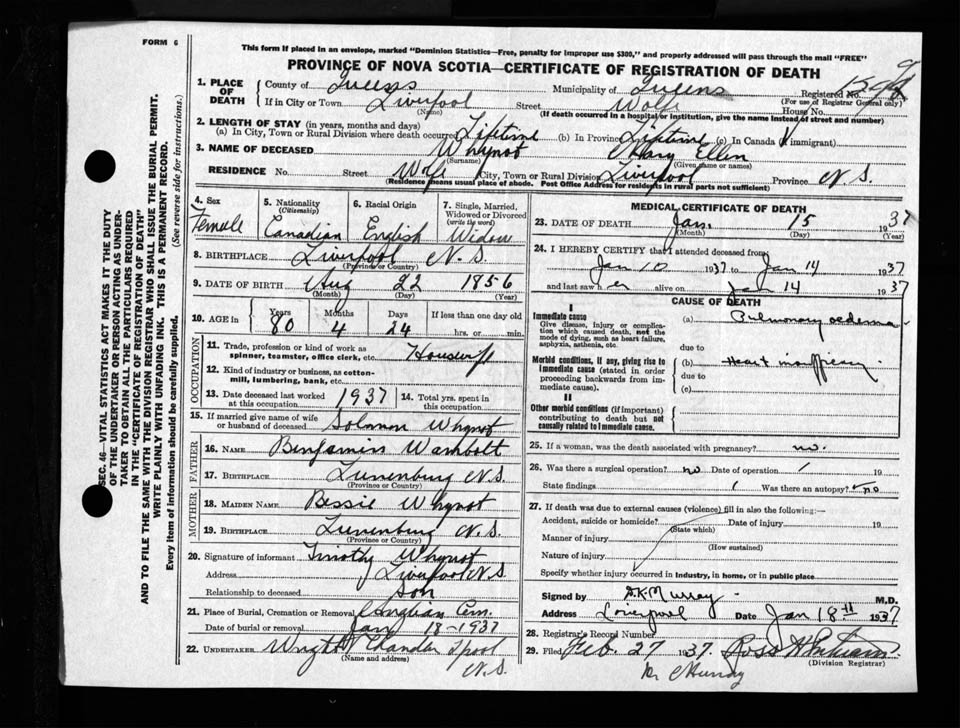 FORM 6
This form if placed in an envelope, marked "Dominion Statistics—Free, penalty for improper use $300," and properly addressed will pass through the mail "FREE"
PROVINCE OF NOVA SCOTIA—CERTIFICATE OF REGISTRATION OF DEATH
SEC. 46—VITAL STATISTICS ACT MAKES IT THE DUTY
OF THE UNDERTAKER OR PERSON ACTING AS UNDER-
TAKER TO OBTAIN ALL THE PARTICULARS REQUIRED
IN THE "CERTIFICATE OF REGISTRATION OF DEATH"
AND TO FILE THE SAME WITH THE DIVISION REGISTRAR WHO SHALL ISSUE THE BURIAL PERMIT.
WRITE PLAINLY WITH UNFADING INK. THIS IS A PERMANENT RECORD.
Every item of information should be carefully supplied. (See reverse side for instructions.)
1. PLACE OF DEATH County of Queens Municipality of Queens Registered No.
(For use of Registrar General only)
If in City or Town Liverpool Street Wolfe House No.
(Name) (If death occurred in a hospital or institution, give the name instead of street and number)
2. LENGTH OF STAY (in years, months and days)
(a) In City, Town or Rural Division where death occurred Lifetime (b) In Province Lifetime (c) In Canada (if immigrant)
3. NAME OF DECEASED Whynot Mary Ellen
(Surname) (Given name or names)
RESIDENCE No. Street City, Town or Rural Division Liverpool Province N.S.
(Residence means usual place of abode. Post Office Address for residents in rural parts not sufficient)
4. Sex Female
5. Nationality (Citizenship) Canadian
6. Racial Origin English
7. Single, Married, Widowed or Divorced (write the word) Widow
8. BIRTHPLACE Liverpool N.S.
(Province or Country)
9. DATE OF BIRTH Aug 22 1856
(Month) (Day) (Year)
10. AGE in Years 80 Months 4 Days 24 If less than one day old hrs. or min.
OCCUPATION
11. Trade, profession or kind of work as spinner, teamster, office clerk, etc. Housewife
12. Kind of industry or business, as cotton-mill, lumbering, bank, etc.
13. Date deceased last worked at this occupation 1937 14. Total yrs. spent in this occupation
15. If married give name of wife or husband of deceased Solomon Whynot
FATHER
16. NAME Benjamin Wambolt
17. BIRTHPLACE Lunenburg N.S.
(Province or Country)
MOTHER
18. MAIDEN NAME Bessie Whynot
19. BIRTHPLACE Lunenburg N.S.
(Province or Country)
20. Signature of informant Timothy Whynot
Address Liverpool N.S.
Relationship to deceased Son
21. Place of Burial, Cremation or Removal Anglian Cem.
Date of burial or removal Jany 18-1937
22. UNDERTAKER Wright Chandler Lpool
(Name and address) N.S.
MEDICAL CERTIFICATE OF DEATH
23. DATE OF DEATH Jan. 15 1937
(Month) (Day) (Year)
24. I HEREBY CERTIFY that I attended deceased from
Jan 10 1937 to Jan 14 1937
and last saw er alive on Jan 14 1937
CAUSE OF DEATH
I
Immediate cause (a) Pulmonary oedema
Give disease, injury or complication which caused death, not the mode of dying, such as heart failure, asphyxia, asthenia, etc.
due to
Morbid conditions, if any, giving rise to immediate cause (stated in order proceeding backwards from immediate cause). (b) Heart
due to
(c)
II
Other morbid conditions (if important) contributing to death but not causally related to Immediate cause.
25. If a woman, was the death associated with pregnancy? no.
26. Was there a surgical operation? no Date of operation 19
State findings Was there an autopsy? no
27. If death was due to external causes (violence) fill in also the following:—
Accident, suicide or homicide? Date of injury 19
(State which)
Manner of injury
(How sustained)
Nature of injury
Specify whether injury occurred in industry, in home, or in public place
Signed by Murray M.D.
Address Liverpool Date Jan 18th 1937
28. Registrar's Record Number
29. Filed Feb. 27 1937.
(Division Registrar)